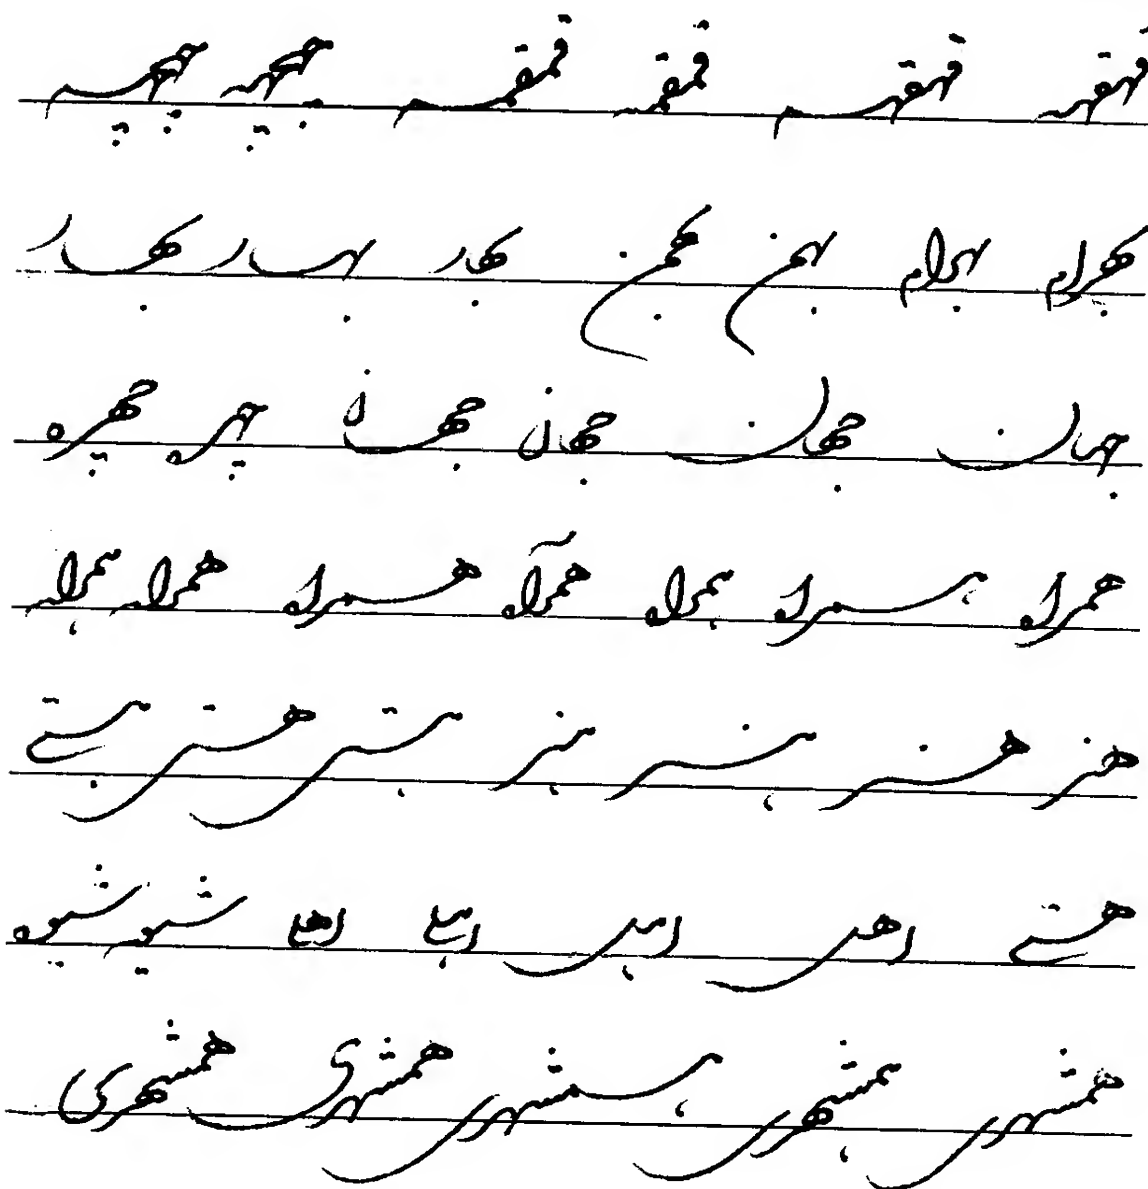 قهقهه قهقهه قمقمه قمقمه چهچهه چهچهه
بهرام بهرام بهمن بهمن بهار بهار بهار
جهان جهان جهان جهان چهره چهره
همراه همراه همراه همراه همراه همراه همراه
هنر هنر هنر هنر هستی هستی هستی
هستی اهلی اهلی اهلی اهلی شیوه شیوه
همشهری همشهری همشهری همشهری همشهری